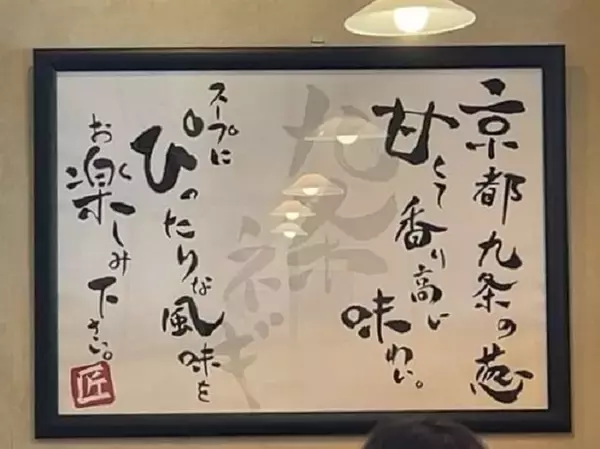 京都九条の葱
甘くて香り高い
味わい。
スープに
ぴったりな風味を
お楽しみ下さい。
匠
九条ネギ